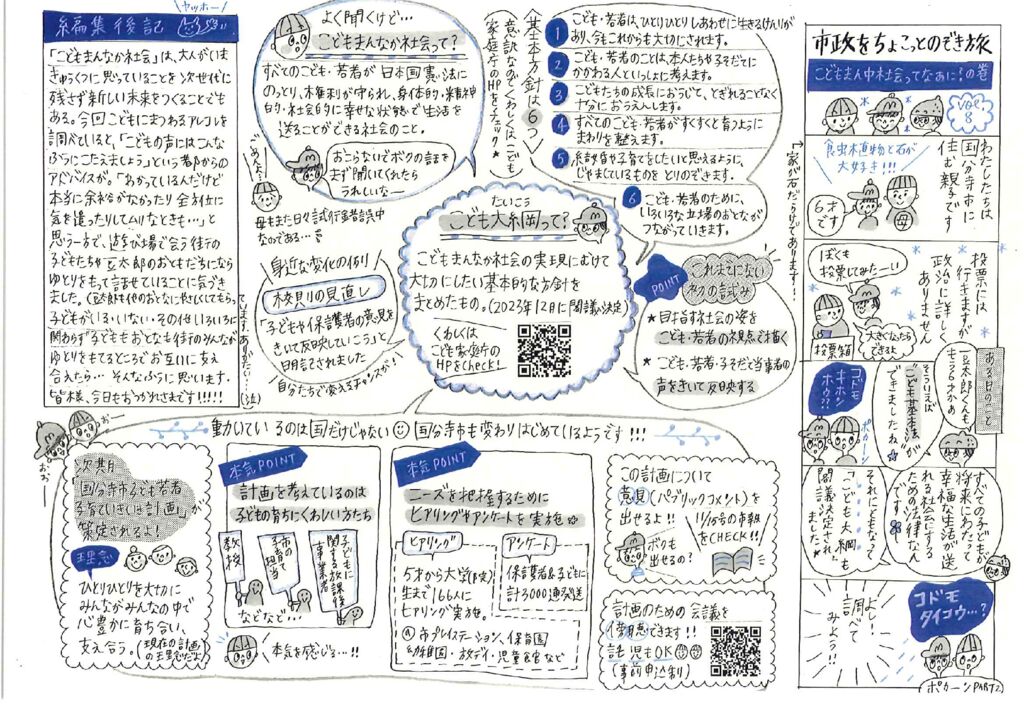 市政をちょこっとのぞき旅
こどもまん中社会ってなぁに?の巻
vol.8
わたしたちは
国分寺市に
住む親子です
食虫植物と石が
大好き!!!
6才です
母
↑家が石だらけであります!
投票には
行きますが
政治に詳しく
ありません
ぼくも
投票してみたーい!
大きくなったら
できるよ
投票箱
ある日のこと
豆太郎くんも
もう6才かぁ
そういえば
こども基本法が
できましたね
コドモ
キホン
ホウ??
ポカーン
すべての子どもが
将来にわたって
幸福な生活が送
れる社会にする
ための法律なん
です
それにともなって
「こども大綱」も
閣議決定され
ました★
コドモ
タイコウ…?
よし!
調べて
みよう!!
ポカーン PART2
よく聞くけど…
こどもまんなか社会って?
すべてのこども・若者が日本国憲法に
のっとり、本権利が守られ、身体的・精神
的・社会的に幸せな状態で生活を
送ることができる社会のこと。
おこらないでボクの話を
まず聞いてくれたら
うれしいなー
ごめんよー
母もまた日々試行錯誤中
なのである…
基本方針は6つ!
意訳なのでくわしくはこども
家庭庁のHPをチェック★
1 こども・若者は、ひとりひとりしあわせに生きるけんりが
あり、今もこれからも大切にされます。
2 こども・若者のことは、本人たちや子そだてに
かかわる人といっしょに考えます。
3 こどもたちの成長におうじて、とぎれることなく
十分におうえんします。
4 すべてのこども・若者がすくすくと育つように
まわりを整えます。
5 結婚や子育てをしたいと思えるように、
じゃましているものをとりのぞきます。
6 こども・若者のために、
いろいろな立場のおとなが
つながっていきます。
たいこう
こども大綱って?
こどもまんなか社会の実現にむけて
大切にしたい基本的な方針を
まとめたもの。(2023年12月に閣議決定)
くわしくは
こども家庭庁の
HPをCheck!
POINT
これまでにない
初の試み
★目指す社会の姿を
こども・若者の視点で描く
★こども・若者・子そだて当事者の
声をきいて反映する
身近な変化の例
校則の見直し
「子どもや保護者の意見を
きいて反映していこう」と
明記されました
自分たちで変えるチャンスが!
ヤッホー
編集後記
「こどもまんなか社会」は、大人がいま
きゅうくつに思っていることを次世代に
残さず新しい未来をつくることでも
ある。今回こどもにまつわるアレコレを
調べていると、「こどもの声にはこんな
ふうにこたえましょう」という専門からの
アドバイスが。「わかっているんだけど
本当に余裕がなかったり会う人に
気を遣ったりしてムリなときも…」と
思う一方で、遊び場で会う街の
子どもたちや豆太郎のおともだちになら
ゆとりをもって話せていることに気づき
ました。(豆太郎も他のおとなにやさしくしてもらっ
てます。ありがたい…)
子どもがいる・いない・その他いろいろに
関わらず子どももおとなも街のみんなが
ゆとりをもてるところでお互いに支え
合えたら…そんなふうに思います。
皆様、今日もおつかれさまです!!!!!
おー
おぉ
動いているのは国だけじゃない 国分寺市も変わりはじめているようです!!!
次期
国分寺市子ども若者
子育ていきいき計画が
策定されるよ!
理念
ひとりひとりを大切に
みんながみんなの中で
心豊かに育ち合い、
支え合う。(現在の計画の理念だよ)
本気POINT
計画を考えているのは
子どもの育ちにくわしい方たち
教授
市の子育て担当
子どもに関する放課後事業者
などなど…
本気を感じる…!!
本気POINT
ニーズを把握するために
ヒアリングやアンケートを実施
ヒアリング
5才から大学(院)
生まで166人に
ヒアリング実施。
市プレイステーション、保育園
幼稚園・放デイ・児童館など
アンケート
保護者&子どもに
計3000通郵送
この計画について
意見(パブリックコメント)を
出せるよ!!
11/15号の市報
をCHECK!!
ボクも
出せるの?
計画のための会議を
傍聴できます!!
託児もOK
(事前申込制)